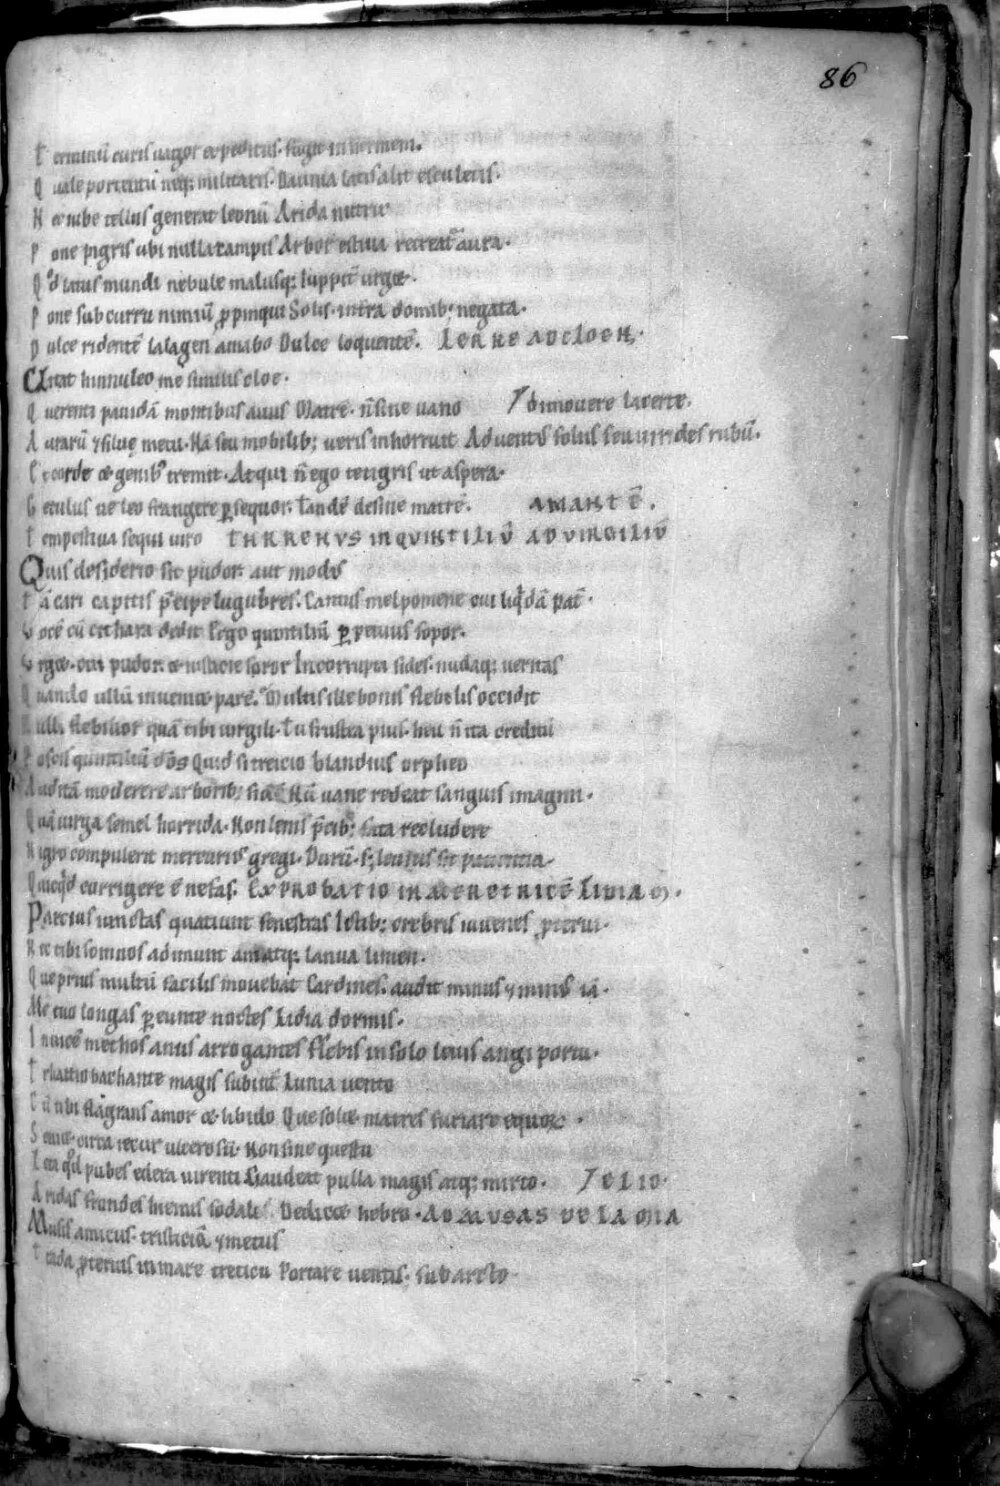 86
Terminū curis vagor expeditus. fugit inhermem.
Quale portentū neq; militaris. Daunia latis alit esculetis.
Nec iube tellus generat leonū Arida nutrix
Pone pigris ubi nulla campis Arbor estiva recreat᷑ aura.
Qd̊ latus mundi nebule malusq; Iuppit̄ urget.
Pone sub curru nimiū ꝓpinqui Solis. infra domib; negata.
Dulce ridentē lalagen amabo Dulce loquentē.
Vitat hinnuleo me similis cloe.
Querenti pavidā montibus avus Matrē. n̄ sine vano / dimovere lacerte.
Aurarū ⁊ silue metu. Nā seu mobilib; veris inhorruit Adventꝰ folus seu virides rubū.
Et corde et genibꝰ tremit. Atqui n̄ ego te tigris ut aspera.
Getulus ve leo frangere ꝑsequor. Tandē desine matrē. AMANTĒ.
Tempestiva sequi viro THRRENVS IN QVINTILIŪ AD VIRGILIŪ
Quis desiderio sit pudor. aut modus
Tā cari capitis p̄cipe lugubres. Cantus melpomene cui liq̇dā pat̄.
Vocē cū cithara dedit Ergo quintiliū ꝑpetuus sopor.
Urget. cui pudor. et iusticie soror Incorrupta fides. nudaq; veritas
Quando ullū inveniet parē. Multis ille bonis flebilis occidit
Nulli flebilior quā tibi virgili. Tu frustra pius. heu n̄ ita creditū
Poscis quintiliū dōs Quid si treicio blandius orpheo
Auditā moderere arborib; fidē Nū vane redeat sanguis imagini.
Quā virga semel horrida. Non lenis p̄cib; fata recludere
Nigro compulerit mercurius gregi. Durū. s; levius fit patientia
Quicq̇d corrigere ē nefas. EXPROBATIO IN MERETRICĒ LIDIAM.
Parcius iunctas quatiunt fenestras Ictib; crebris iuvenes ꝓtervi.
Nec tibi somnos adimunt amatq; Ianua limen.
Que prius multū facilis movebat Cardines. audit minus ⁊ minus iā.
Me tuo longas ꝑeunte noctes Lidia dormis.
Invicē mechos anus arrogantes Flebis in solo levis angiportu.
Thratio bachante magis sub int̄ Lunia vento
Cū tibi flāgrans amor et libido Que solet matres furiare equoꝝ.
Seviet. circa iecur ulcerosū. Non sine questu
Leta qd̊ pubes edera virenti Gaudeat pulla magis atq; mirto. / ELIO.
Aridas frondes hiemis sodali. Dedicet hebro. AD MUSAS DE LAMIA
Musis amicus. tristiciā ⁊ metus
Tradā ꝓtervis in mare creticū Portare ventis. sub arcto